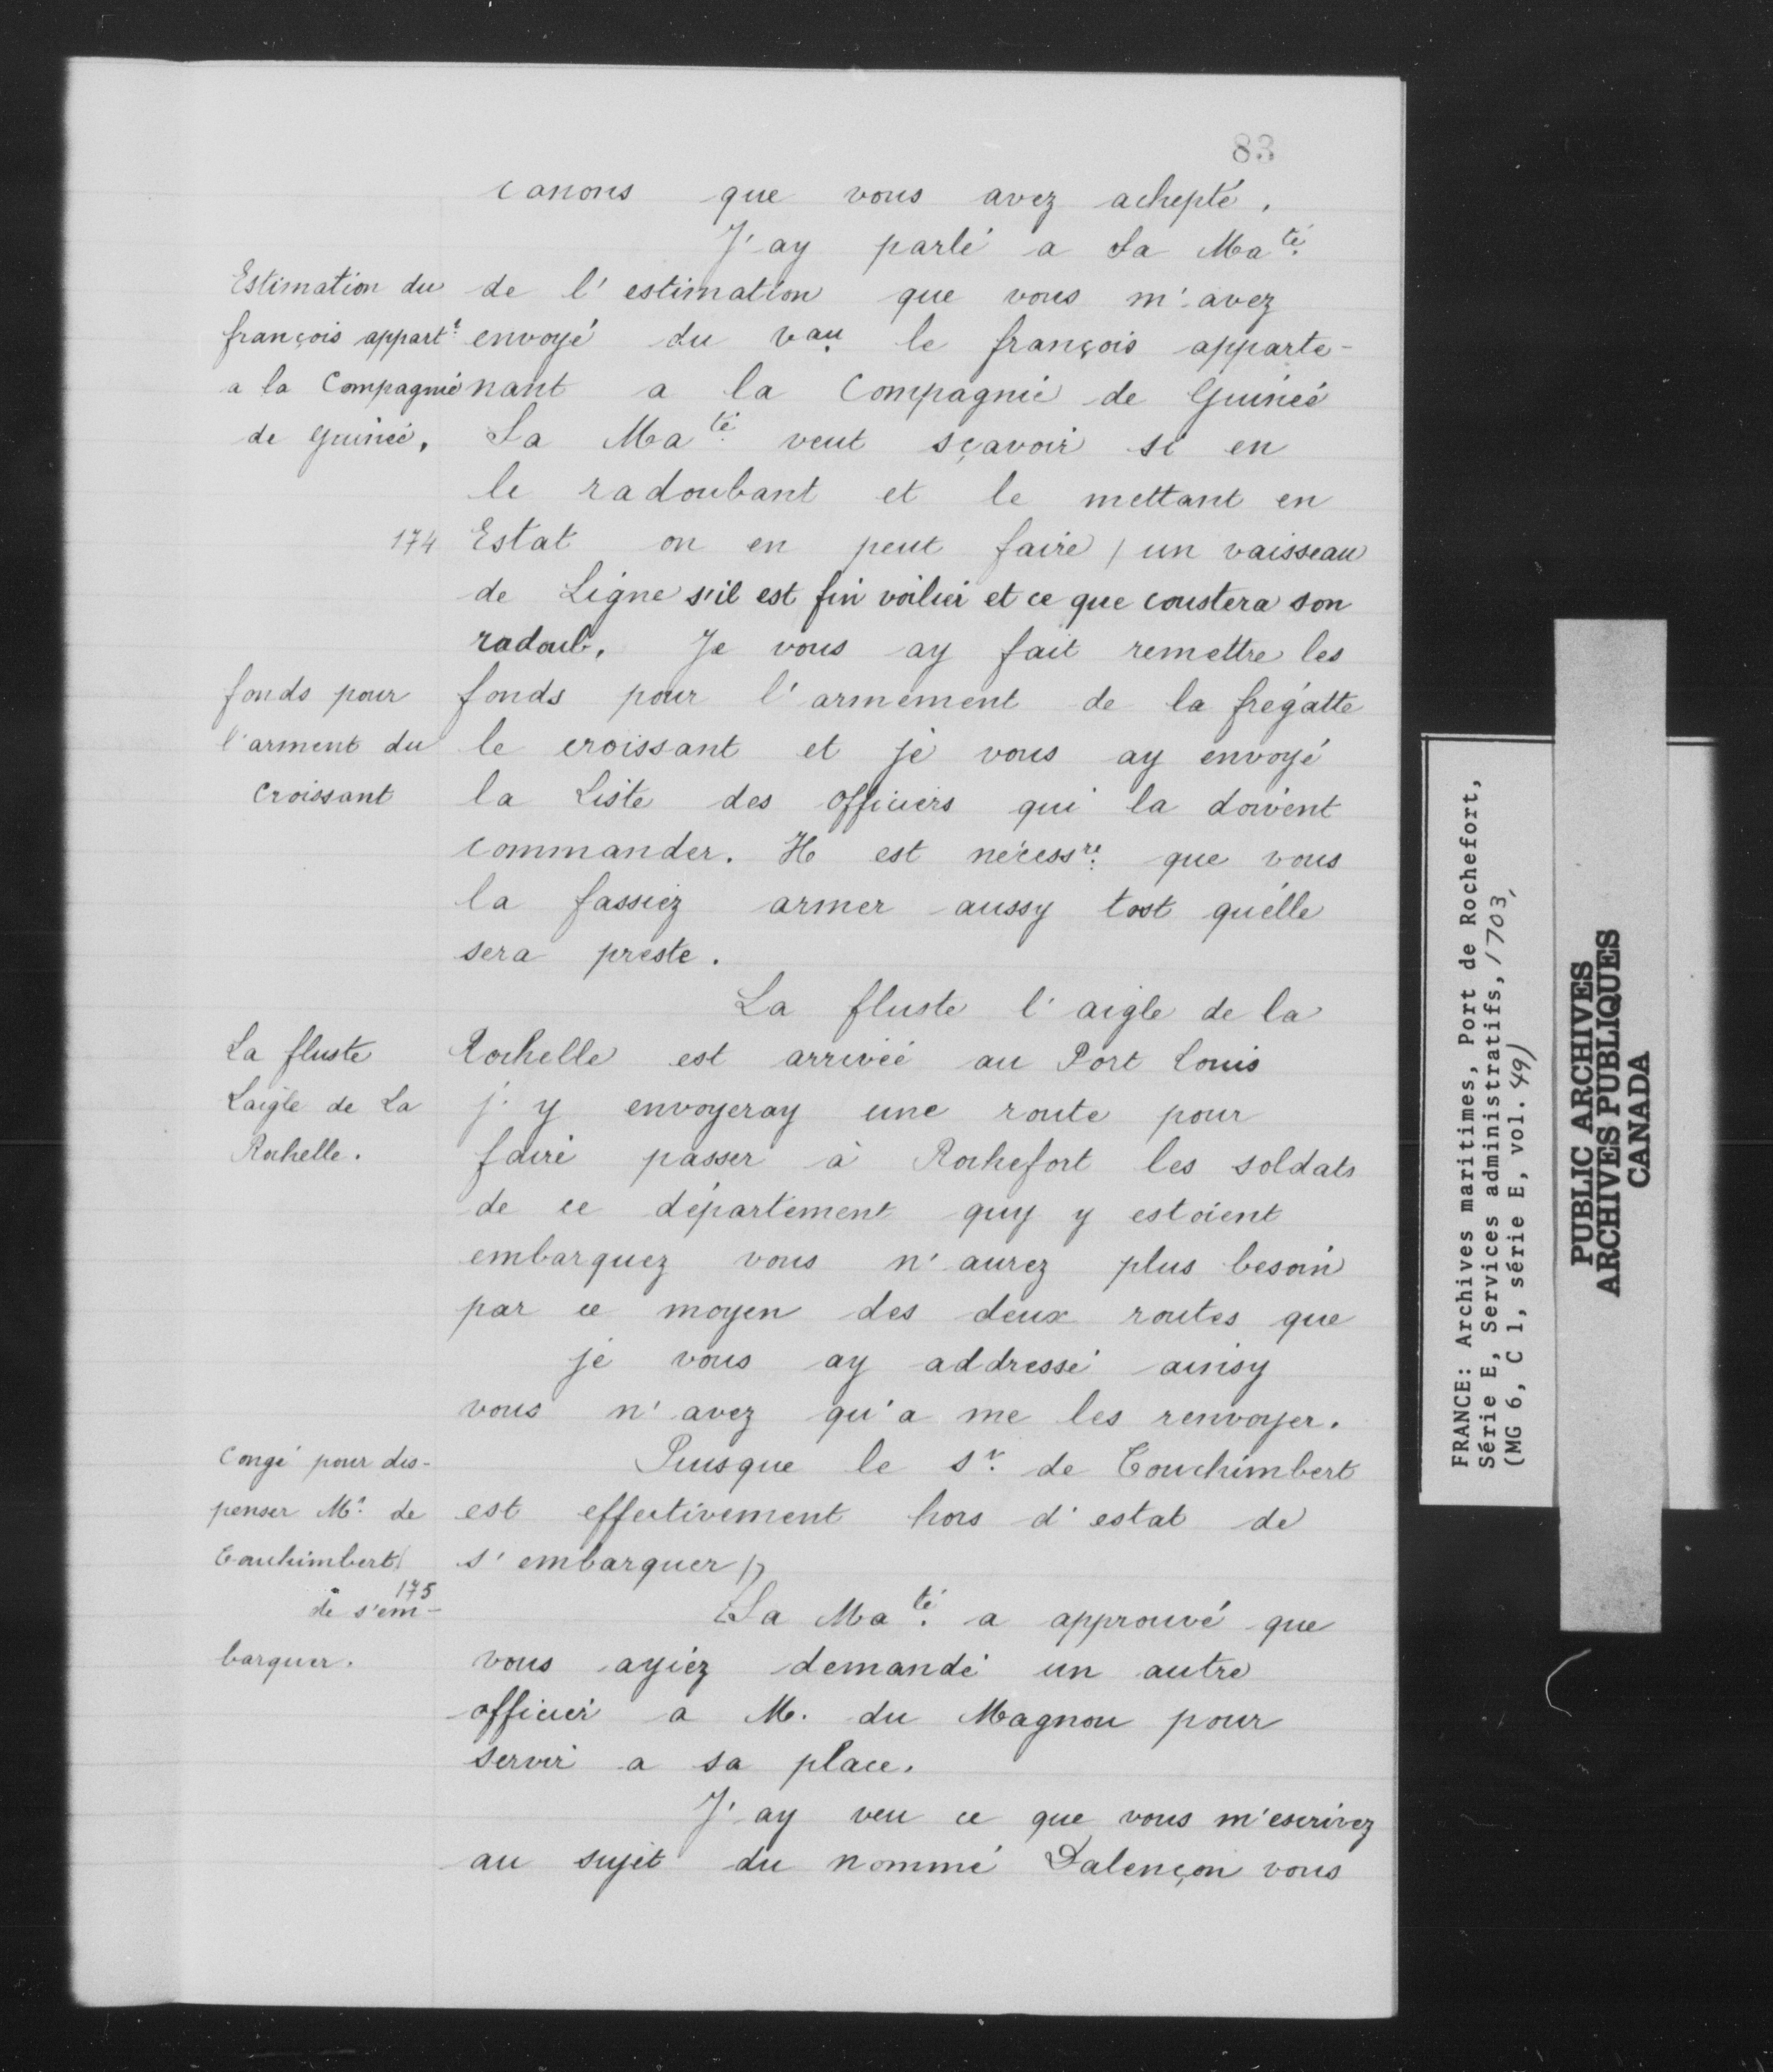 83
canons que vous avez achepté.
J'ay parlé a Sa Ma.té
Estimation du
françois appart.t
a la Compagnie
de Guinée.
de l'estimation que vous m'avez
envoyé du vau le françois apparte-
nant a la Compagnie de Guinée
Sa Ma.té veut sçavoir si en
le radoubant et le mettant en
174
Estat on en peut faire / un vaisseau
de Ligne s'il est fin voilier et ce que coustera son
radoub. Je vous ay fait remettre les
fonds pour
l'arment du
Croissant
fonds pour l'armement de la frégatte
le croissant et je vous ay envoyé
la Liste des officiers qui la doivent
commander. Il est nécess.re que vous
la fassiez armer aussy tost qu'elle
sera preste.
La fluste l'aigle de la
La fluste
Laigle de La
Rochelle.
Rochelle est arrivée au Port Louis
j'y envoyeray une route pour
faire passer à Rochefort les soldats
de ce département quy y estoient
embarquez vous n'aurez plus besoin
par ce moyen des deux routes que
je vous ay addressé ainsy
vous n'avez qu'a me les renvoyer.
Congé pour dis-
penser M.r de
Touchimbert
175
de s'em-
barquer.
Puisque le S.r de Touchimbert
est effectivement hors d'estat de
s'embarquer /
Sa Ma.té a approuvé que
vous ayiez demandé un autre
officier a M. du Magnou pour
servir a sa place.
J'ay veu ce que vous m'escrivez
au sujet du nommé Dalençon vous
FRANCE: Archives maritimes, Port de Rochefort,
Série E, Services administratifs, 1703,
(MG 6, C 1, série E, vol. 49)
PUBLIC ARCHIVES
ARCHIVES PUBLIQUES
CANADA